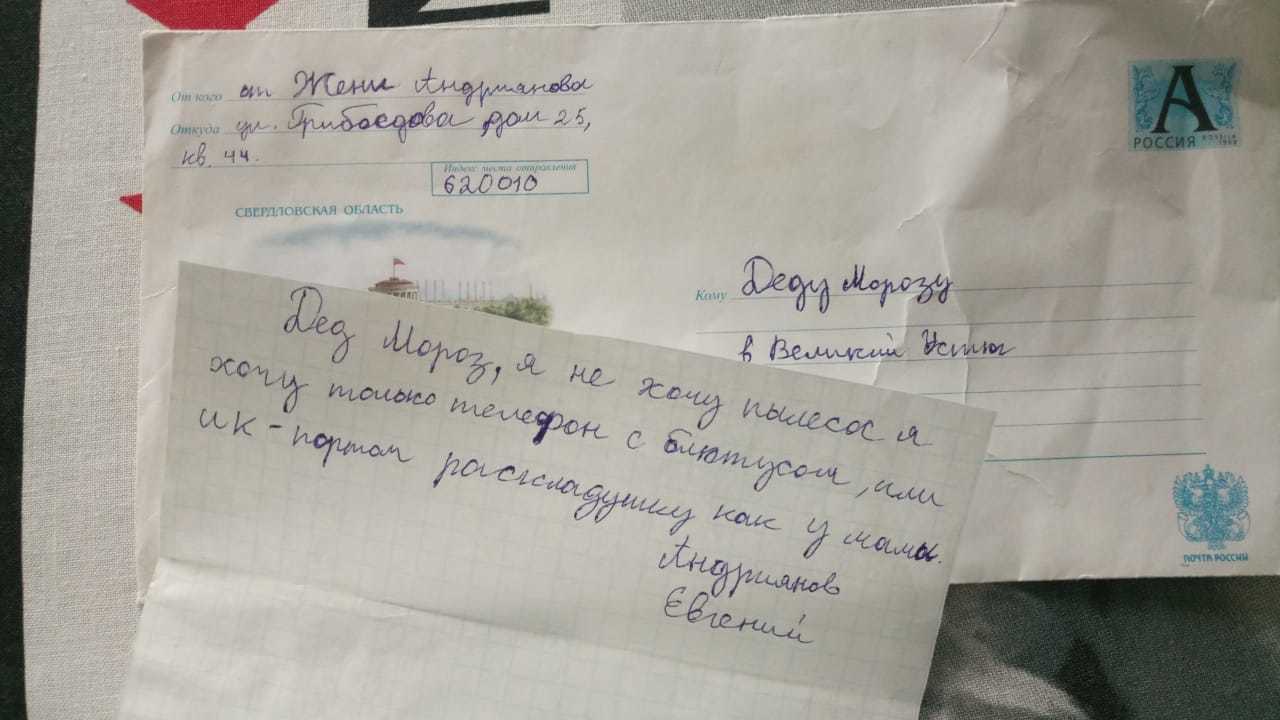 От кого от Жени Андриянова
Откуда ул. Грибоедова дом 25,
кв. 44.
Индекс места отправления
620010
СВЕРДЛОВСКАЯ ОБЛАСТЬ
А
РОССИЯ
Кому Деду Морозу
в Великий Устюг
ПОЧТА РОССИИ
Дед Мороз, я не хочу пылесос я
хочу только телефон с блютусом, или
ИК-портом раскладушку как у мамы.
Андриянов
Евгений